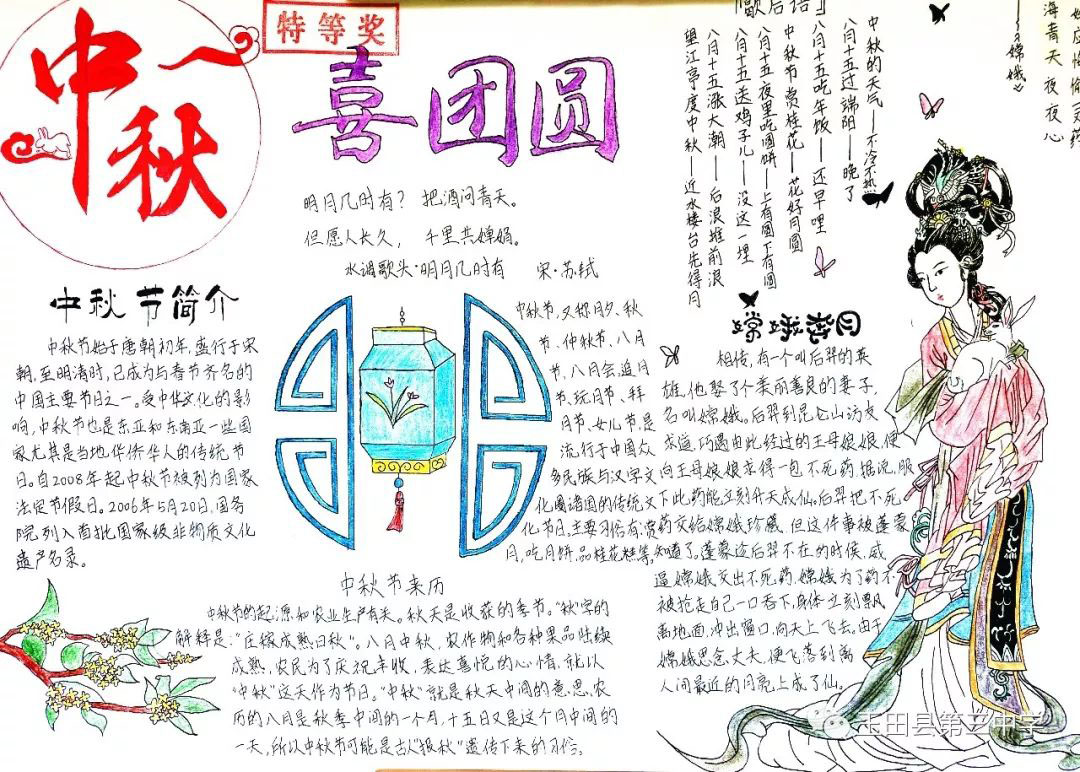 中秋
特等奖
喜团圆
明月几时有？把酒问青天。
但愿人长久，千里共婵娟。
水调歌头·明月几时有 宋·苏轼
中秋节简介
中秋节始于唐朝初年，盛行于宋
朝，至明清时，已成为与春节齐名的
中国主要节日之一。受中华文化的影
响，中秋节也是东亚和东南亚一些国
家尤其是当地华侨华人的传统节
日。自2008年起中秋节被列为国家
法定节假日。2006年5月20日，国务
院列入首批国家级非物质文化
遗产名录。
中秋节，又称月夕、秋
节、仲秋节、八月
节、八月会、追月
节、玩月节、拜
月节、女儿节，是
流行于中国众
多民族与汉字文
化圈诸国的传统文
化节日，主要习俗有：赏
月，吃月饼，品桂花糕等。
中秋节来历
中秋节的起源和农业生产有关。秋天是收获的季节。"秋"字的
解释是："庄稼成熟曰秋"。八月中秋，农作物和各种果品陆续
成熟，农民为了庆祝丰收，表达喜悦的心情，就以
"中秋"这天作为节日。"中秋"就是秋天中间的意思，农
历的八月是秋季中间的一个月，十五日又是这个月中间的
一天，所以中秋节可能是古人"报秋"遗传下来的习俗。
歇后语
中秋的天气——不冷不热
八月十五过端阳——晚了
八月十五吃年饭——还早哩
中秋节赏桂花——花好月圆
八月十五夜里吃月饼——上有圆下有圆
八月十五送鸡子儿——没这一理
八月十五涨大潮——后浪推前浪
望江亭度中秋——近水楼台先得月
海青天夜夜心
——《嫦娥》
嫦娥奔月
相传，有一个叫后羿的英
雄，他娶了个美丽善良的妻子，
名叫嫦娥。后羿到昆仑山访友
求道，巧遇由此经过的王母娘娘，便
向王母娘娘求得一包不死药。据说，服
下此药能立刻升天成仙。后羿把不死
药交给嫦娥珍藏，但这件事被蓬蒙
知道了。蓬蒙趁后羿不在的时候，威
逼嫦娥交出不死药，嫦娥为了药不
被抢走自己一口吞下，身体立刻飘
离地面，冲出窗口，向天上飞去。由于
嫦娥思念丈夫，便飞落到离
人间最近的月亮上成了仙。
玉田县第三中学